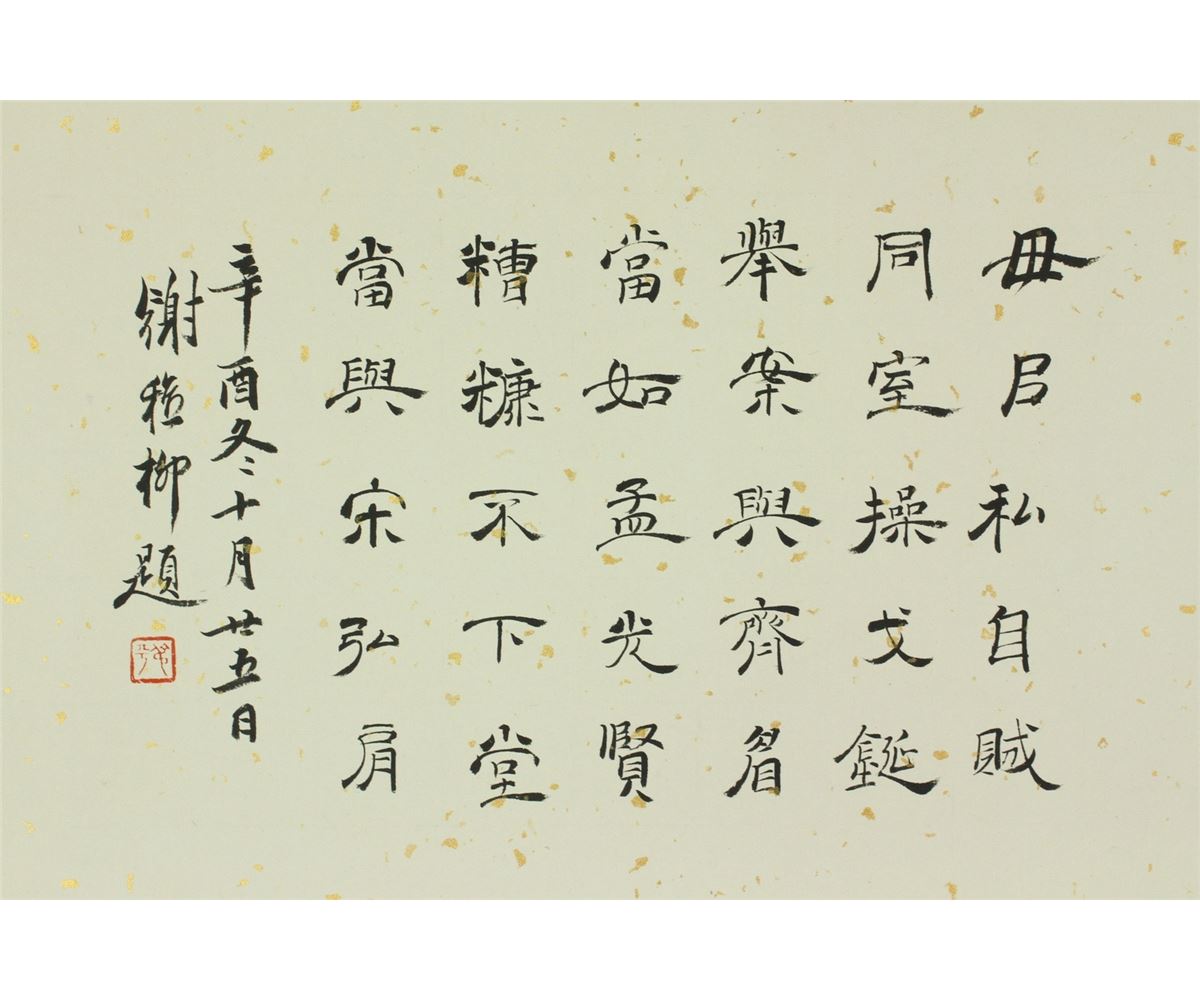 毋㠯私自賊
同室操戈鋋
舉案與齊眉
當如孟光賢
糟糠不下堂
當與宋弘肩
辛酉冬十月廿五日
謝稚柳題